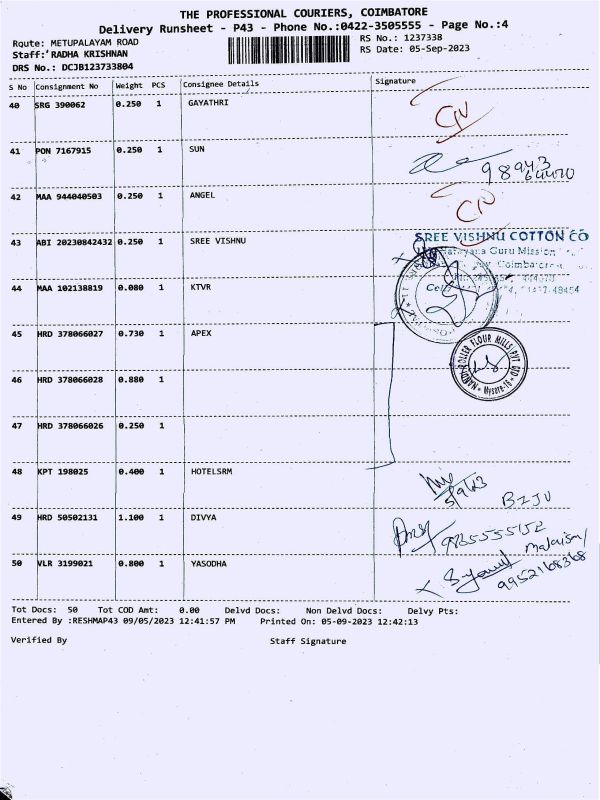 THE PROFESSIONAL COURIERS, COIMBATORE
Delivery Runsheet - P43 - Phone No.:0422-3505555 - Page No.:4
Route: METUPALAYAM ROAD RS No.: 1237338
Staff: RADHA KRISHNAN RS Date: 05-Sep-2023
DRS No.: DCJB123733804
S No Consignment No Weight PCS Consignee Details Signature
40 SRG 390062 0.250 1 GAYATHRI
41 PON 7167915 0.250 1 SUN
98943
64470
42 MAA 944040503 0.250 1 ANGEL
43 ABI 20230842432 0.250 1 SREE VISHNU
SREE VISHNU COTTON CO
Narayana Guru Mission
Coimbatore
44 MAA 102138819 0.080 1 KTVR
45 HRD 378066027 0.730 1 APEX
ROLLER FLOUR MILLS PVT LTD
Mysore-16
46 HRD 378066028 0.880 1
47 HRD 378066026 0.250 1
48 KPT 198025 0.400 1 HOTELSRM
5/9/23
BIJU
49 HRD 50502131 1.100 1 DIVYA
50 VLR 3199021 0.800 1 YASODHA
9952168368
Tot Docs: 50 Tot COD Amt: 0.00 Delvd Docs: Non Delvd Docs: Delvy Pts:
Entered By :RESHMAP43 09/05/2023 12:41:57 PM Printed On: 05-09-2023 12:42:13
Verified By Staff Signature